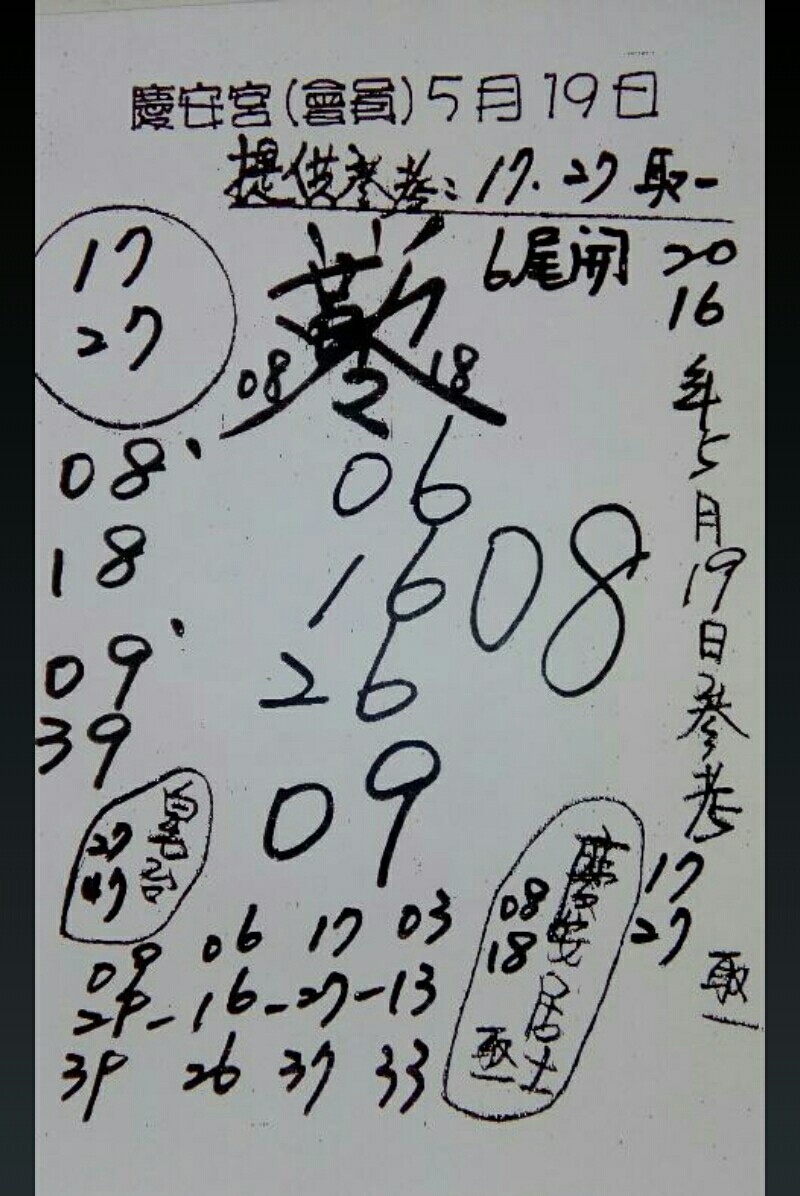 慶安宮(會員)5月19日
提供參考:17.27取一
17
27
6尾開
08 18
2016年5月19日參考
17
27
取一
08
18
09
39
06
16
26
08
09
27
47
慶安居士
08
18
取一
09 06 17 03
29-16-27-13
39 26 37 33